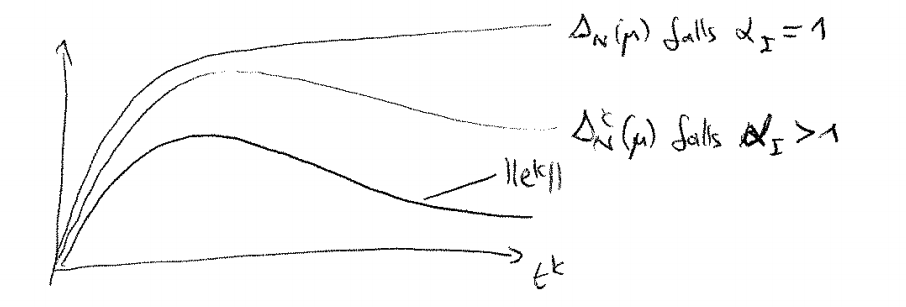 Δ_N(μ) falls α_I = 1
Δ_N^k(μ) falls α_I > 1
||e^k||
t^k